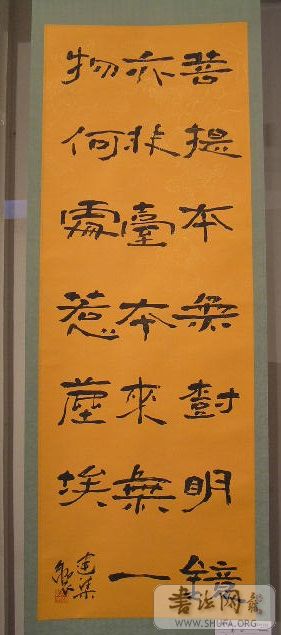 菩提本無樹明鏡
亦非臺本來無一
物何處惹塵埃
書法网
WWW.SHUFA.ORG